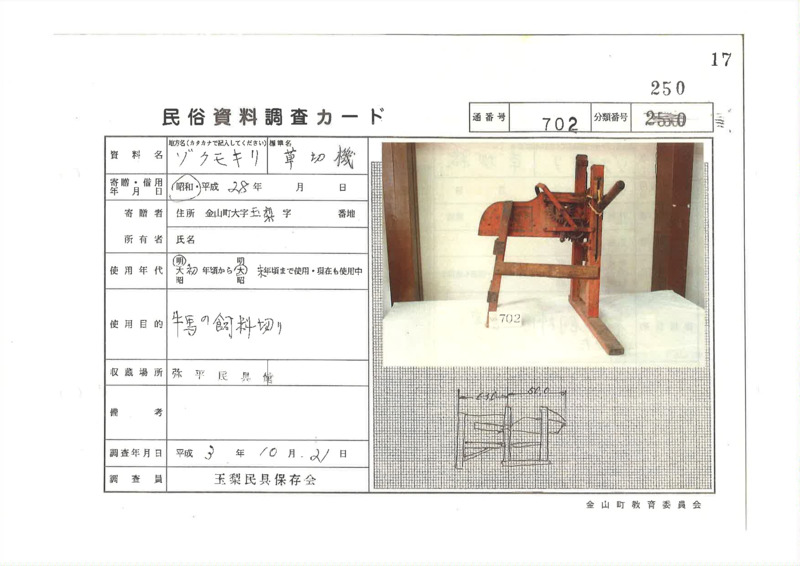 17
250
民俗資料調査カード
通番号 702 分類番号
資料名 地方名(カタカナで記入してください) 標準名
ゾクモキリ 草切機
寄贈・借用年月日 昭和・平成 28年 月 日
寄贈者 住所 金山町大字玉梨字 番地
所有者 氏名
使用年代 明大昭 初年頃から 明大昭 末年頃まで使用・現在も使用中
使用目的 牛馬の飼料切り
収蔵場所 弥平民具館
備考
調査年月日 平成 3年 10月 21日
調査員 玉梨民具保存会
702
50.0
金山町教育委員会